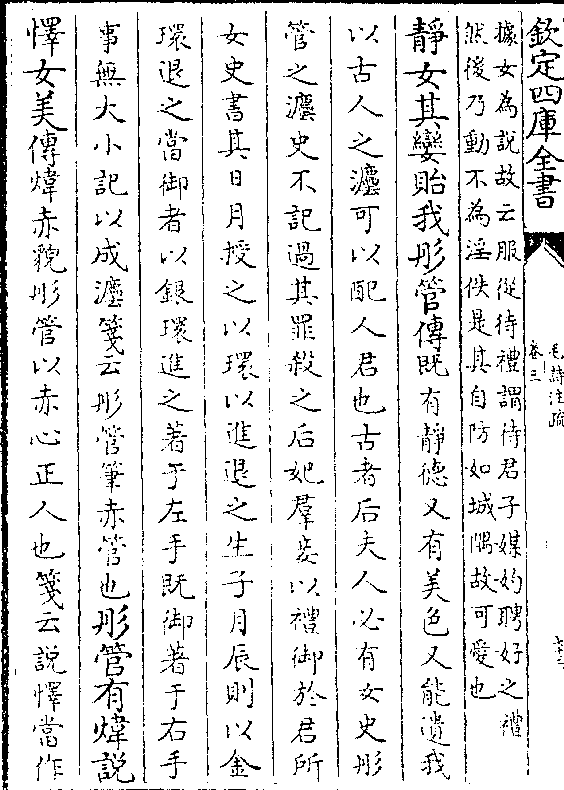 欽定四庫全書
毛詩注疏
卷三
據女為說故云服從待禮謂待君子媒妁聘好之禮
然後乃動不為淫佚是其自防如城隅故可愛也
靜女其孌貽我彤管傳既有靜德又有美色又能遺我
以古人之灋可以配人君也古者后夫人必有女史彤
管之灋史不記過其罪殺之后妃羣妾以禮御於君所
女史書其日月授之以環以進退之生子月辰則以金
環退之當御者以銀環進之著于左手既御著于右手
事無大小記以成灋箋云彤管筆赤管也彤管有煒說
懌女美傳煒赤貌彤管以赤心正人也箋云說懌當作